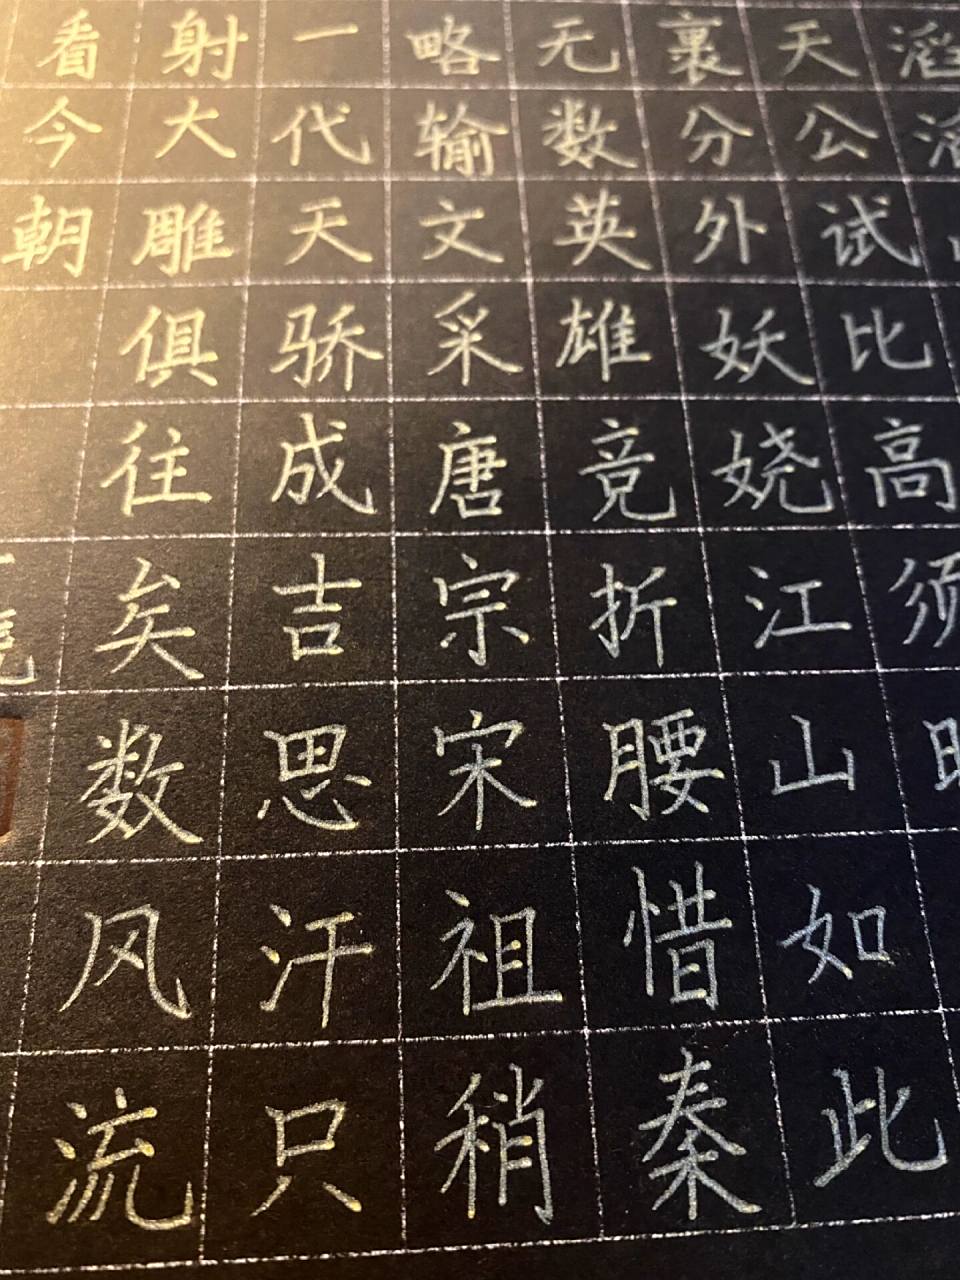 滔滔
天公试比高须
裹分外妖娆江山如此
无数英雄竞折腰惜秦
略输文采唐宗宋祖稍
一代天骄成吉思汗只
射大雕俱往矣数风流
看今朝